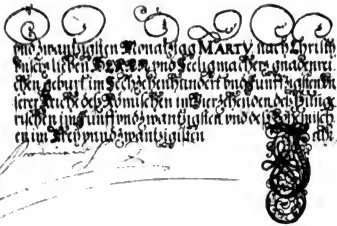 vnd zwantzigisten Monatstag MARTY, nach Christi
vnsers lieben HERRN vnd Seeligmachers gnadenrei
chen geburt im Sechzehenhundert vnd Funfftzigisten
Reiche deß Römischen im Vierzehenden deß Hunge
rischen im Funff vnd zwantzigisten vnd deß
en im vnd zwantzigisten